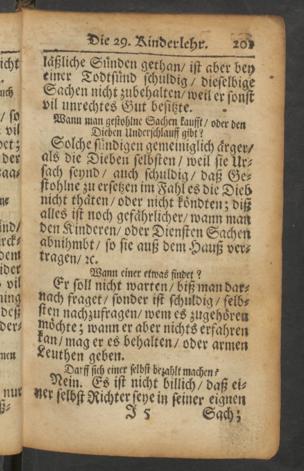 Die 29. Kinderlehr. 201
läßliche Sünden gethan / ist aber bey
einer Todtsünd schuldig / dieselbige
Sachen nicht zubehalten / weil er sonst
vil unrechtes Gut besitzte.
Wann man gestohlne Sachen kaufft / oder den
Dieben Underschlauff gibt?
Solche sündigen gemeiniglich ärger /
als die Dieben selbsten / weil sie Ur-
sach seynd / auch schuldig / daß Ge-
stohlne zu ersetzen im Fahl es die Dieb
nicht thäten / oder nicht köndten; diß
alles ist noch gefährlicher / wann man
den Kinderen / oder Diensten Sachen
abnihmbt / so sie auß dem Hauß ver-
tragen / ꝛc.
Wann einer etwas findet?
Er soll nicht warten / biß man dar-
nach fraget / sonder ist schuldig / selb-
sten nachzufragen / wem es zugehören
möchte; wann er aber nichts erfahren
kan / mag er es behalten / oder armen
Leuthen geben.
Darff sich einer selbst bezahlt machen?
Nein. Es ist nicht billich / daß ei-
ner selbst Richter seye in seiner eignen
J 5 Sach;